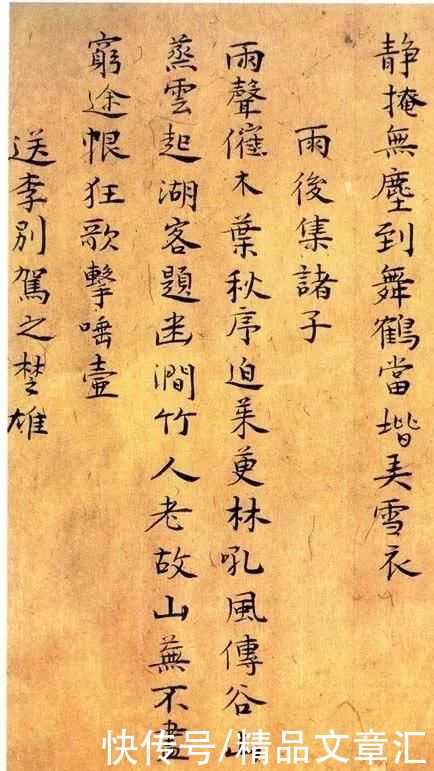 静掩無塵到舞鶴當堦美雪衣
雨後集諸子
雨聲催木葉秋序迫茱萸林吼風傳谷山
蒸雲起湖客題幽澗竹人老故山蕪不盡
窮途恨狂歌擊唾壺
送李別駕之楚雄
快传号/精品文章汇